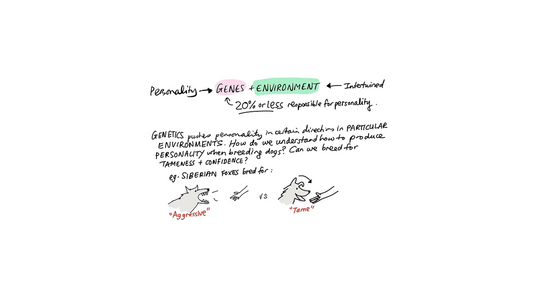 Personality → GENES + ENVIRONMENT ← Intertwined
20% or less responsible for personality.
GENETICS pushes personality in certain directions in PARTICULAR
ENVIRONMENTS. How do we understand how to produce
PERSONALITY when breeding dogs? Can we breed for
TAMENESS + CONFIDENCE?
eg. SIBERIAN FOXES bred for:
vs
"Aggressive"
"Tame"